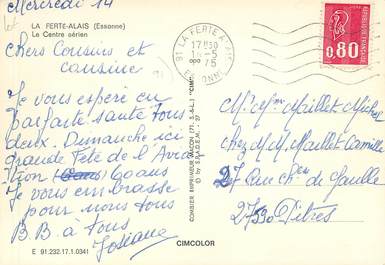 Mercredi 14
LA FERTE-ALAIS (Essonne)
Le Centre aérien
chers Cousins et
cousine
Je vous espère en
parfaite santé tous
deux. Dimanche ici
grande Fête de l'Avia
tion 60 ans
Je vous embrasse
pour nous tous
B.B. à tous
Josiane
E 91.232-17.1.0341
CIMCOLOR
COMBIER IMPRIMEUR MACON (71. S.-&-L.) "CIM"
© by S.P.A.D.E.M.
91 LA FERTE ALAIS
17H30
14-5
1975
ESSONNE
REPUBLIQUE FRANCAISE
0,80
M. et Mme Maillet Michel
chez M M Maillet Camille
27 Rue Ch. de Gaulle
27590 Pîtres